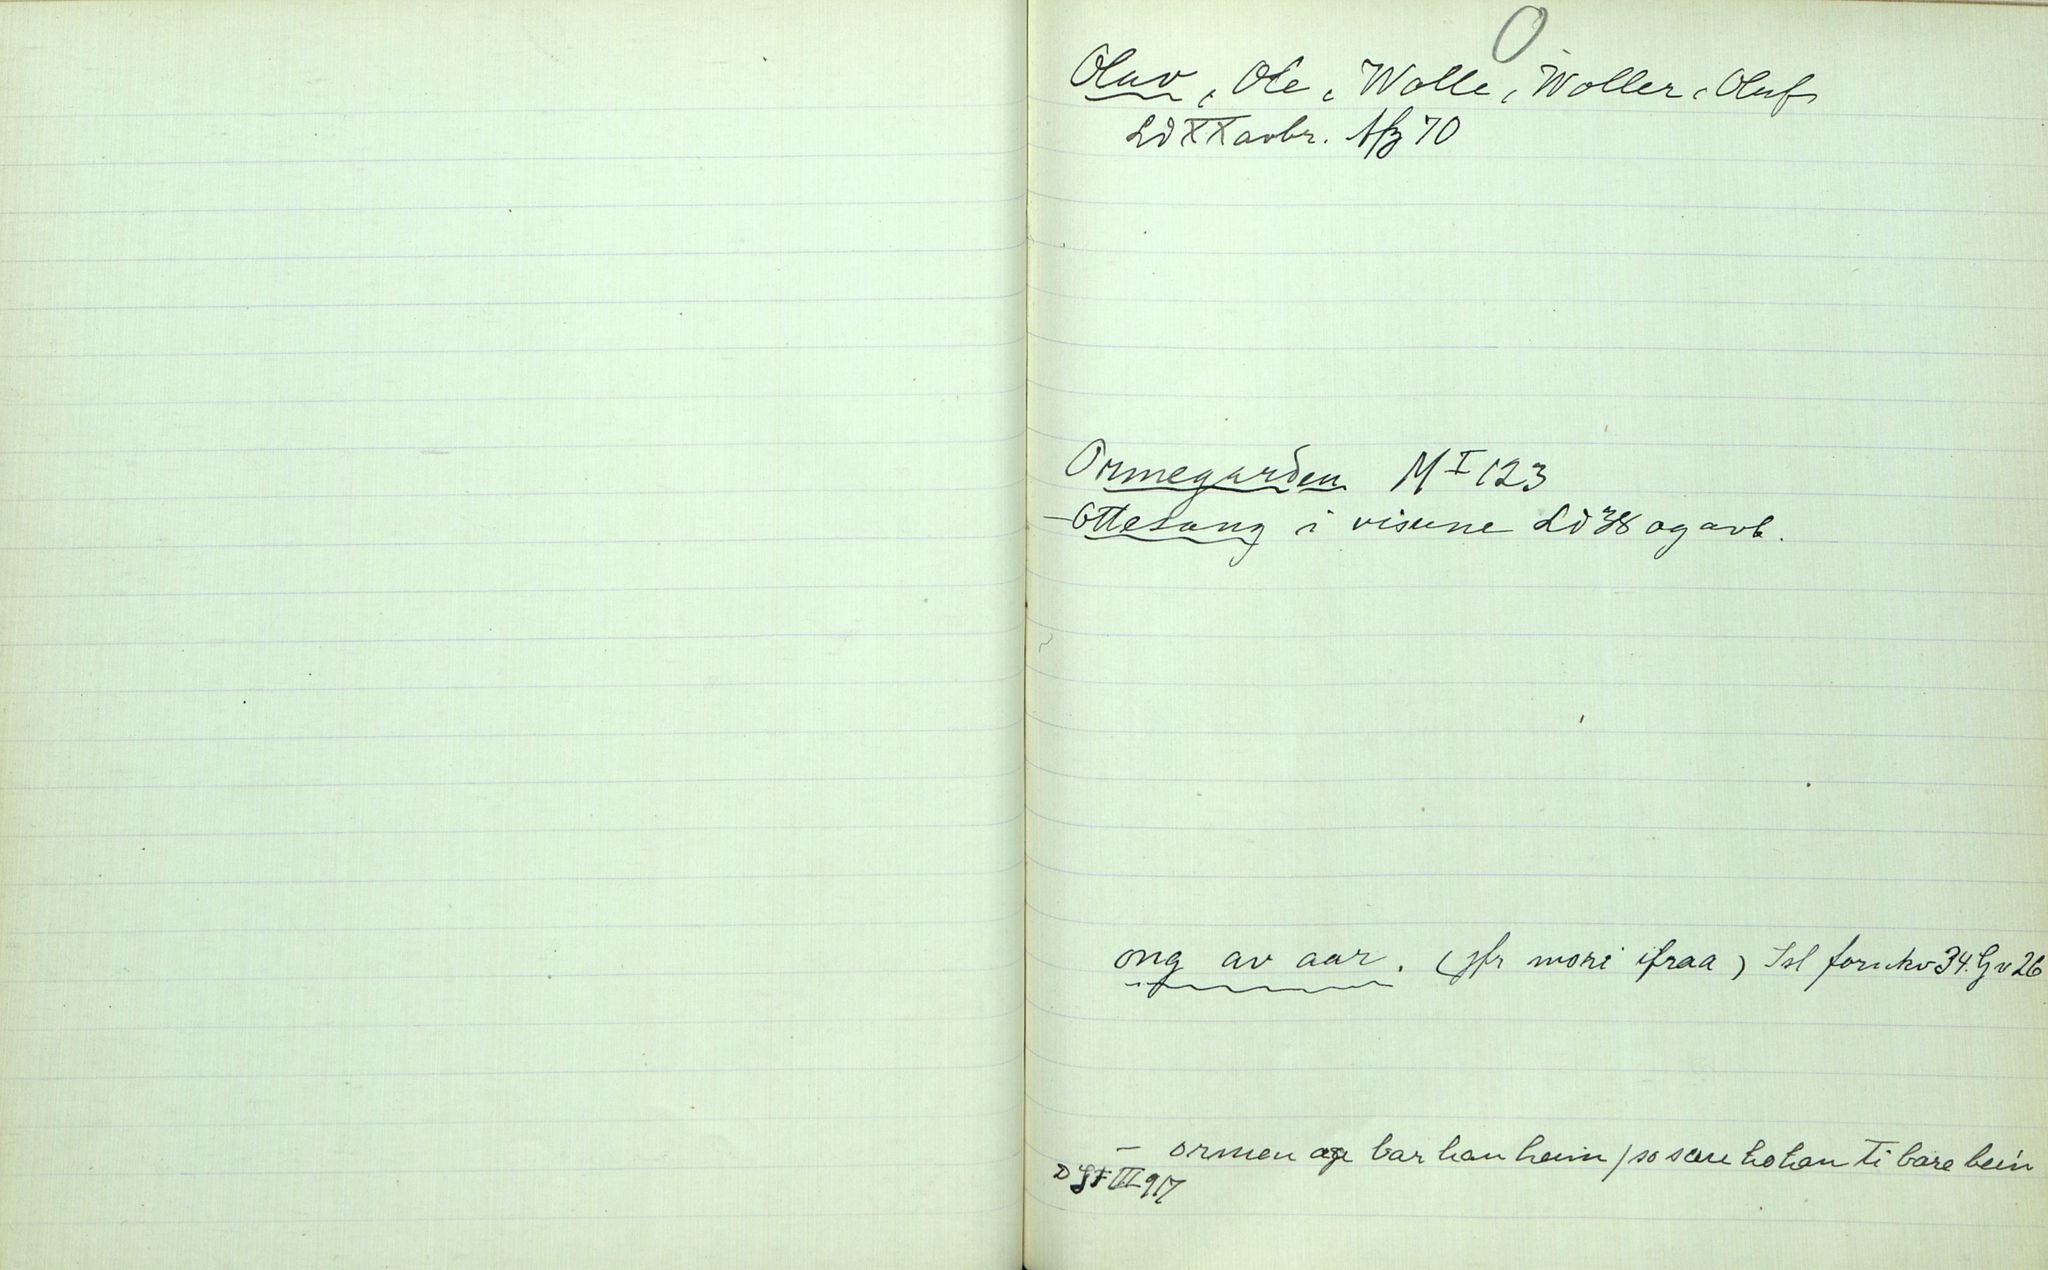 O
Olav, Ole, Wolle, Woller, Oluf
Ld XX avbr. 70
Ormegarden M I 123
– Ottesong i visune Ld 38 og avb.
ong av aar. (jfr mori ifraa) Isl fornkv 34. G v 26
– ormen og bar han heim / so sau ho han ti bare bein
III 917